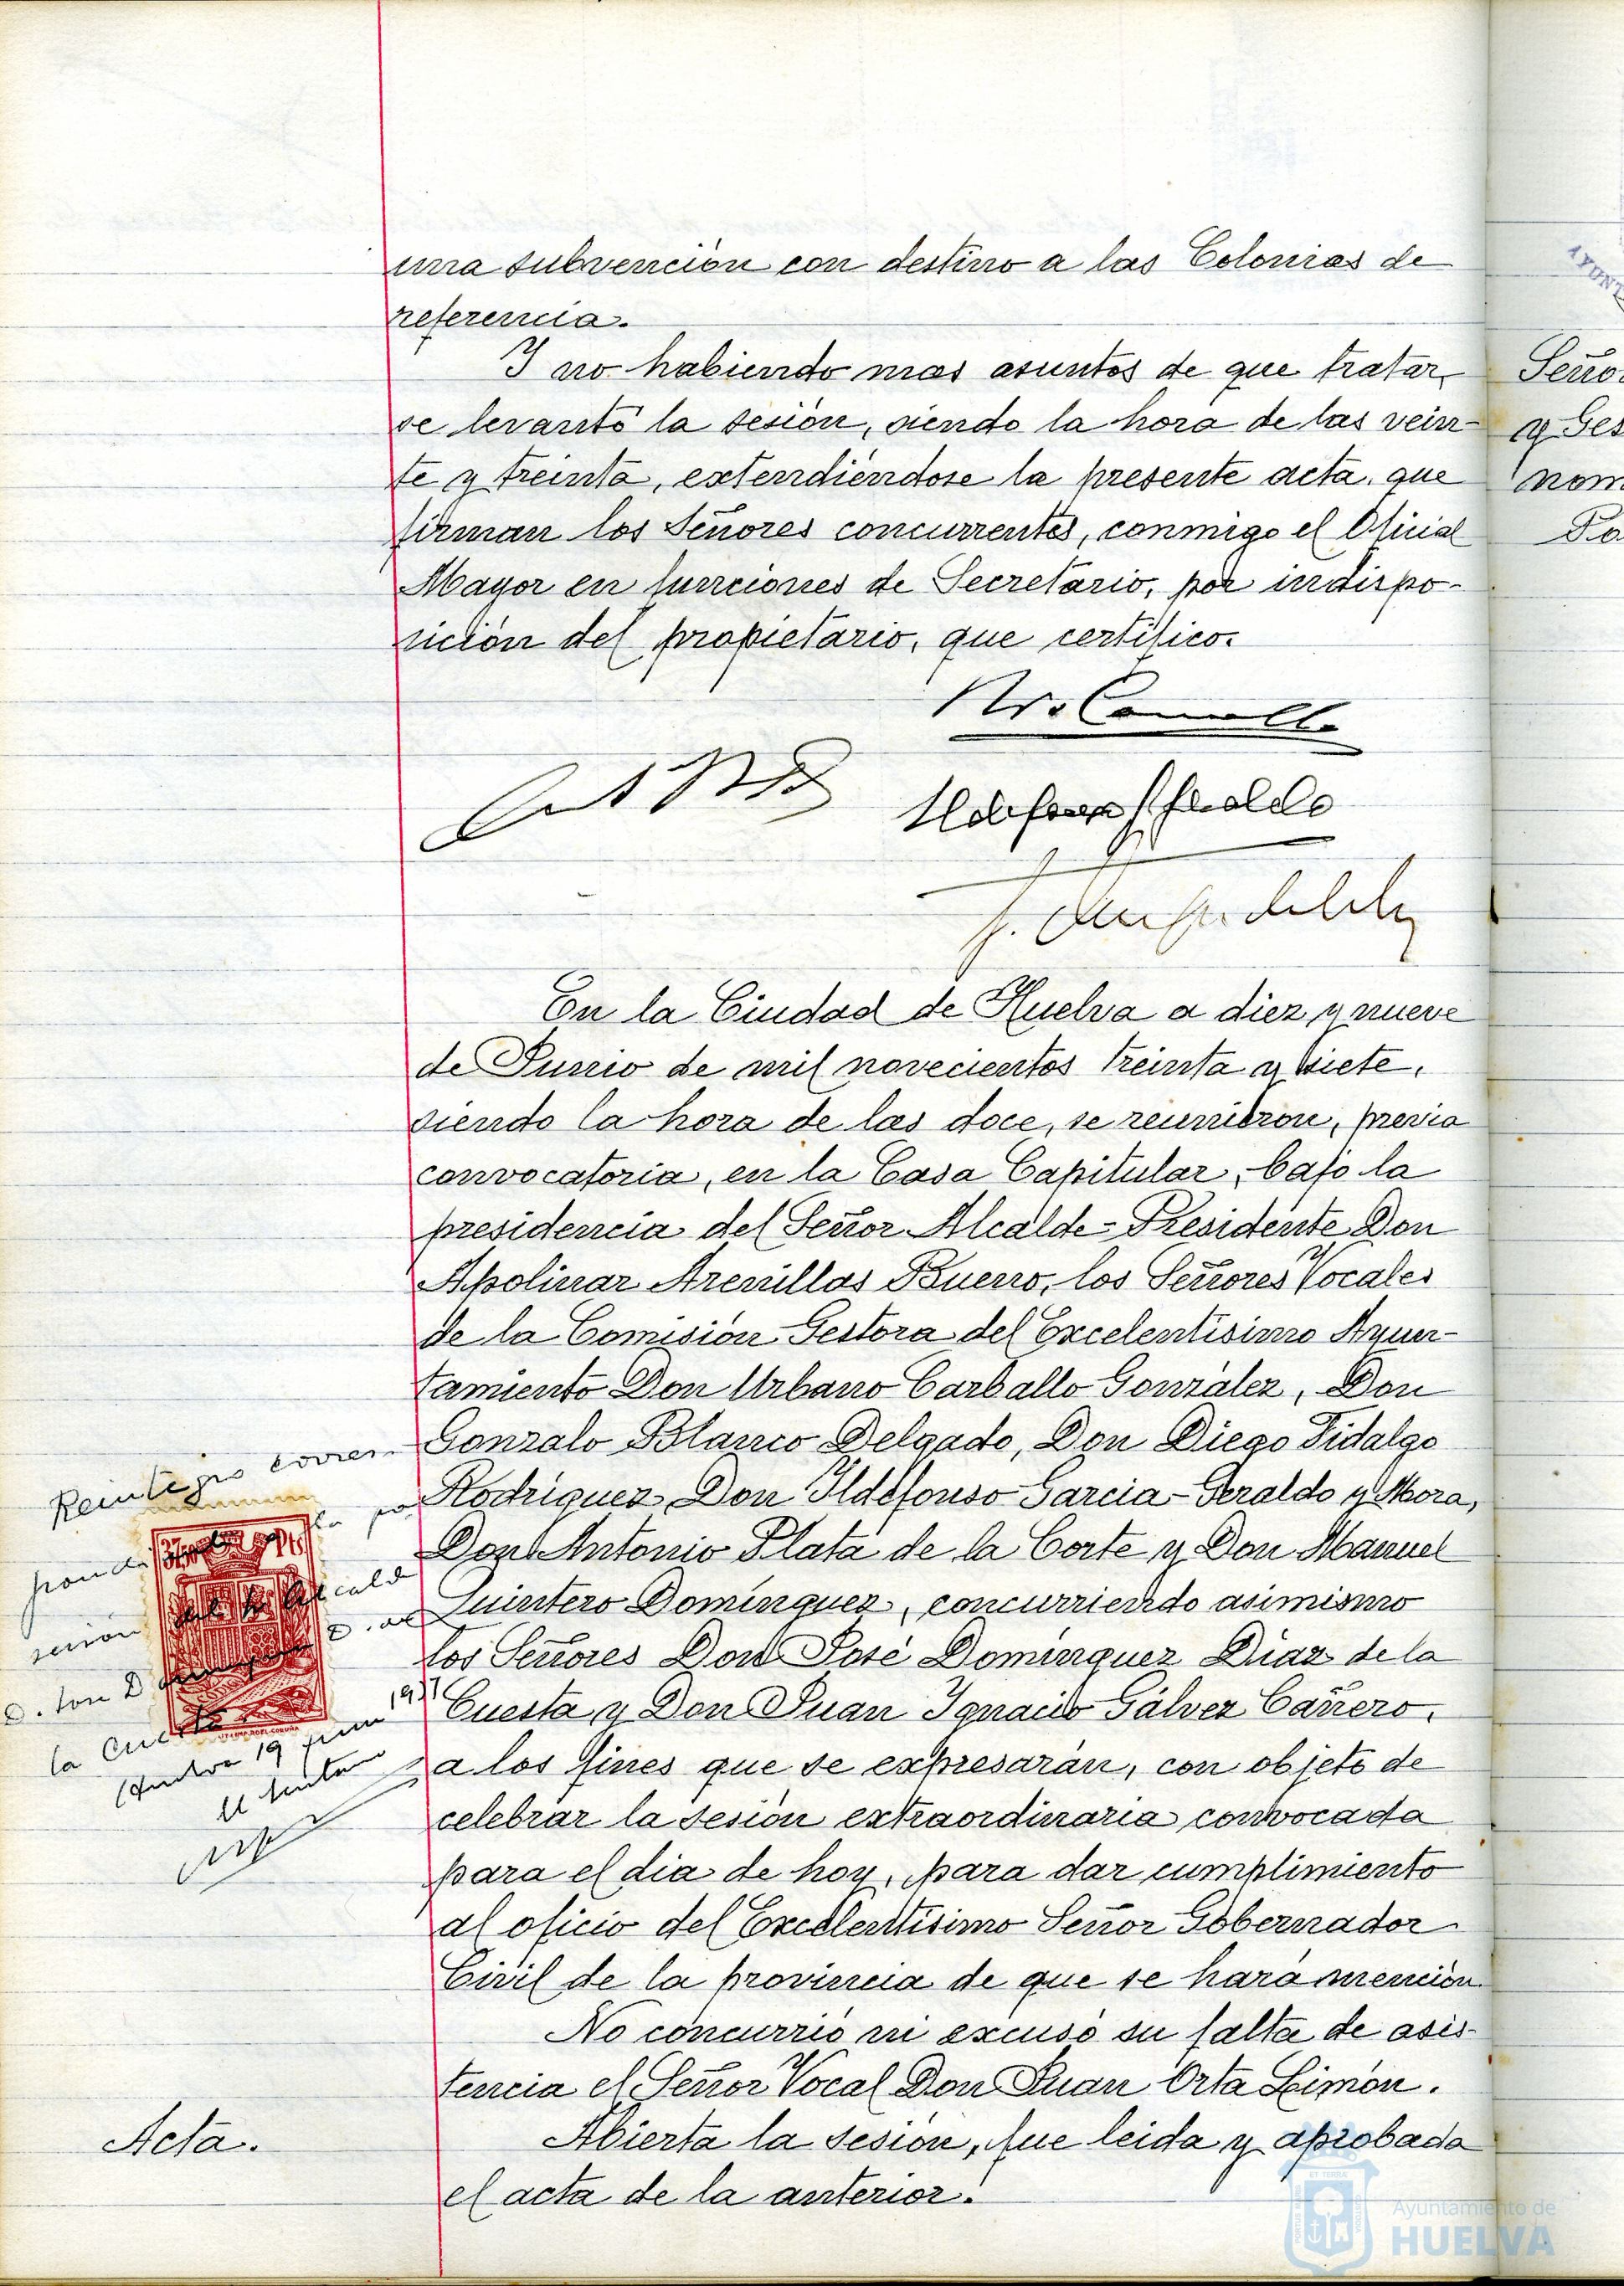 una subvención con destino a las Colonias de
referencia.
Y no habiendo mas asuntos de que tratar,
se levantó la sesión, siendo la hora de las vein-
te y treinta, extendiéndose la presente acta, que
firman los Señores concurrentes, conmigo el Oficial
Mayor en funciones de Secretario, por indispo-
sición del propietario, que certifico.
En la Ciudad de Huelva a diez y nueve
de Junio de mil novecientos treinta y siete,
siendo la hora de las doce, se reunieron, previa
convocatoria, en la Casa Capitular, bajo la
presidencia del Señor Alcalde-Presidente Don
Apolinar Arenillas Bueno, los Señores Vocales
de la Comisión Gestora del Excelentísimo Ayun-
tamiento Don Urbano Carballo González, Don
Gonzalo Blanco Delgado, Don Diego Fidalgo
Rodríguez, Don Ildefonso Garcia-Geraldo y Mora,
Don Antonio Plata de la Corte y Don Manuel
Quintero Domínguez, concurriendo asimismo
los Señores Don José Domínguez Diaz de la
Cuesta y Don Juan Ignacio Gálvez Cañero,
a los fines que se expresarán, con objeto de
celebrar la sesión extraordinaria convocada
para el dia de hoy, para dar cumplimiento
al oficio del Excelentísimo Señor Gobernador
Civil de la provincia de que se hará mención.
No concurrió ni excusó su falta de asis-
tencia el Señor Vocal Don Juan Orta Limón.
Abierta la sesión, fue leida y aprobada
el acta de la anterior.
Reintegro corres-
la po
sesión del Sr. Alcalde
la Cuesta
Huelva 19 junio 1937
Acta.
AYUNT
Seño
y Ges
nom
Ayuntamiento de
HUELVA